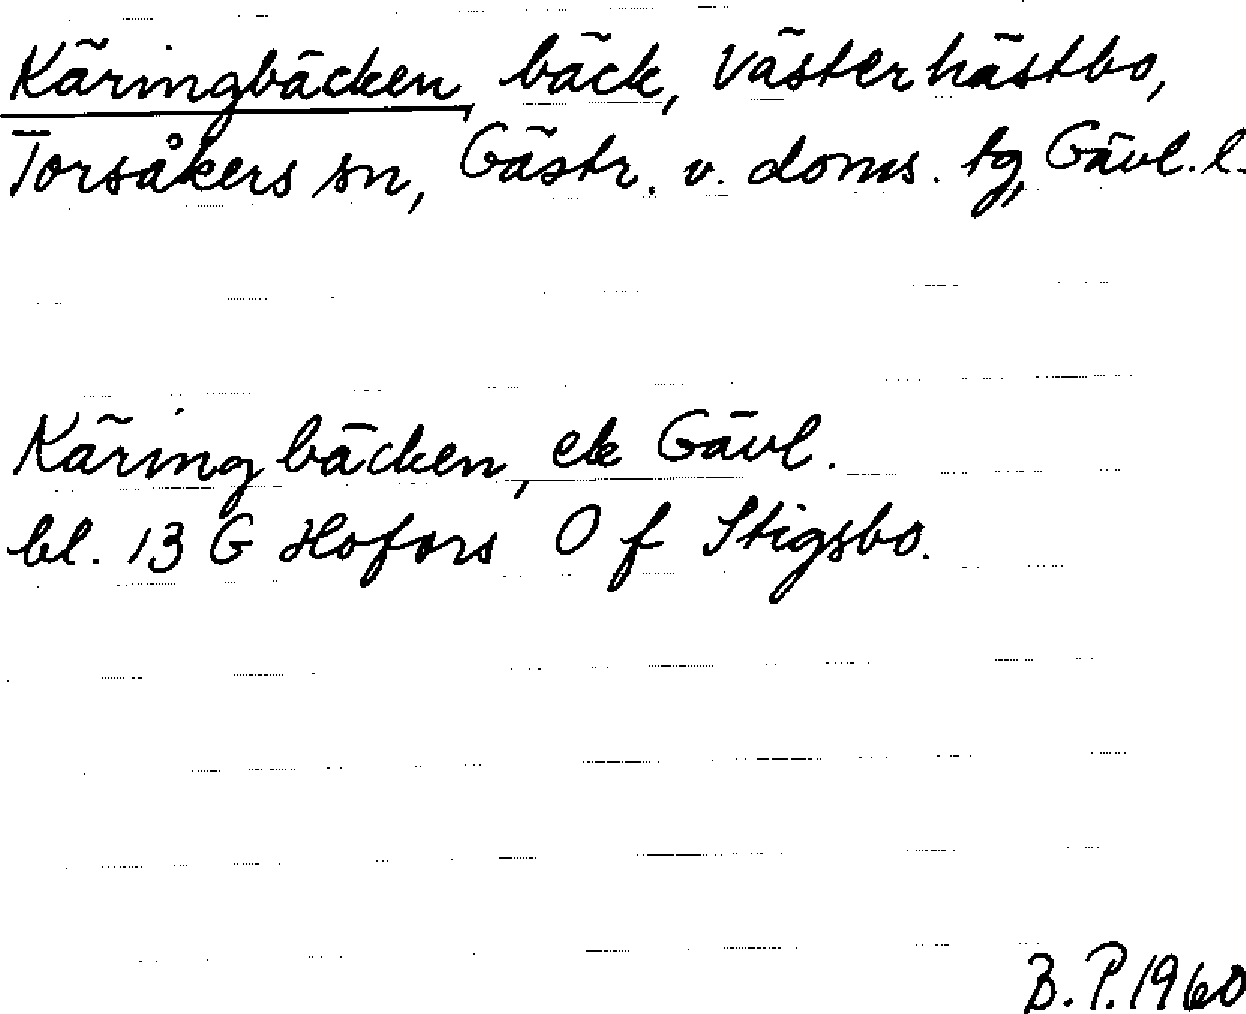 Käringbäcken, bäck, Västerhästbo,
Torsåkers sn, Gästr. v. doms. tg, Gävl. l.
Käringbäcken, ek Gävl.
bl. 13 G Hofors O f Stigsbo.
B. P. 1960